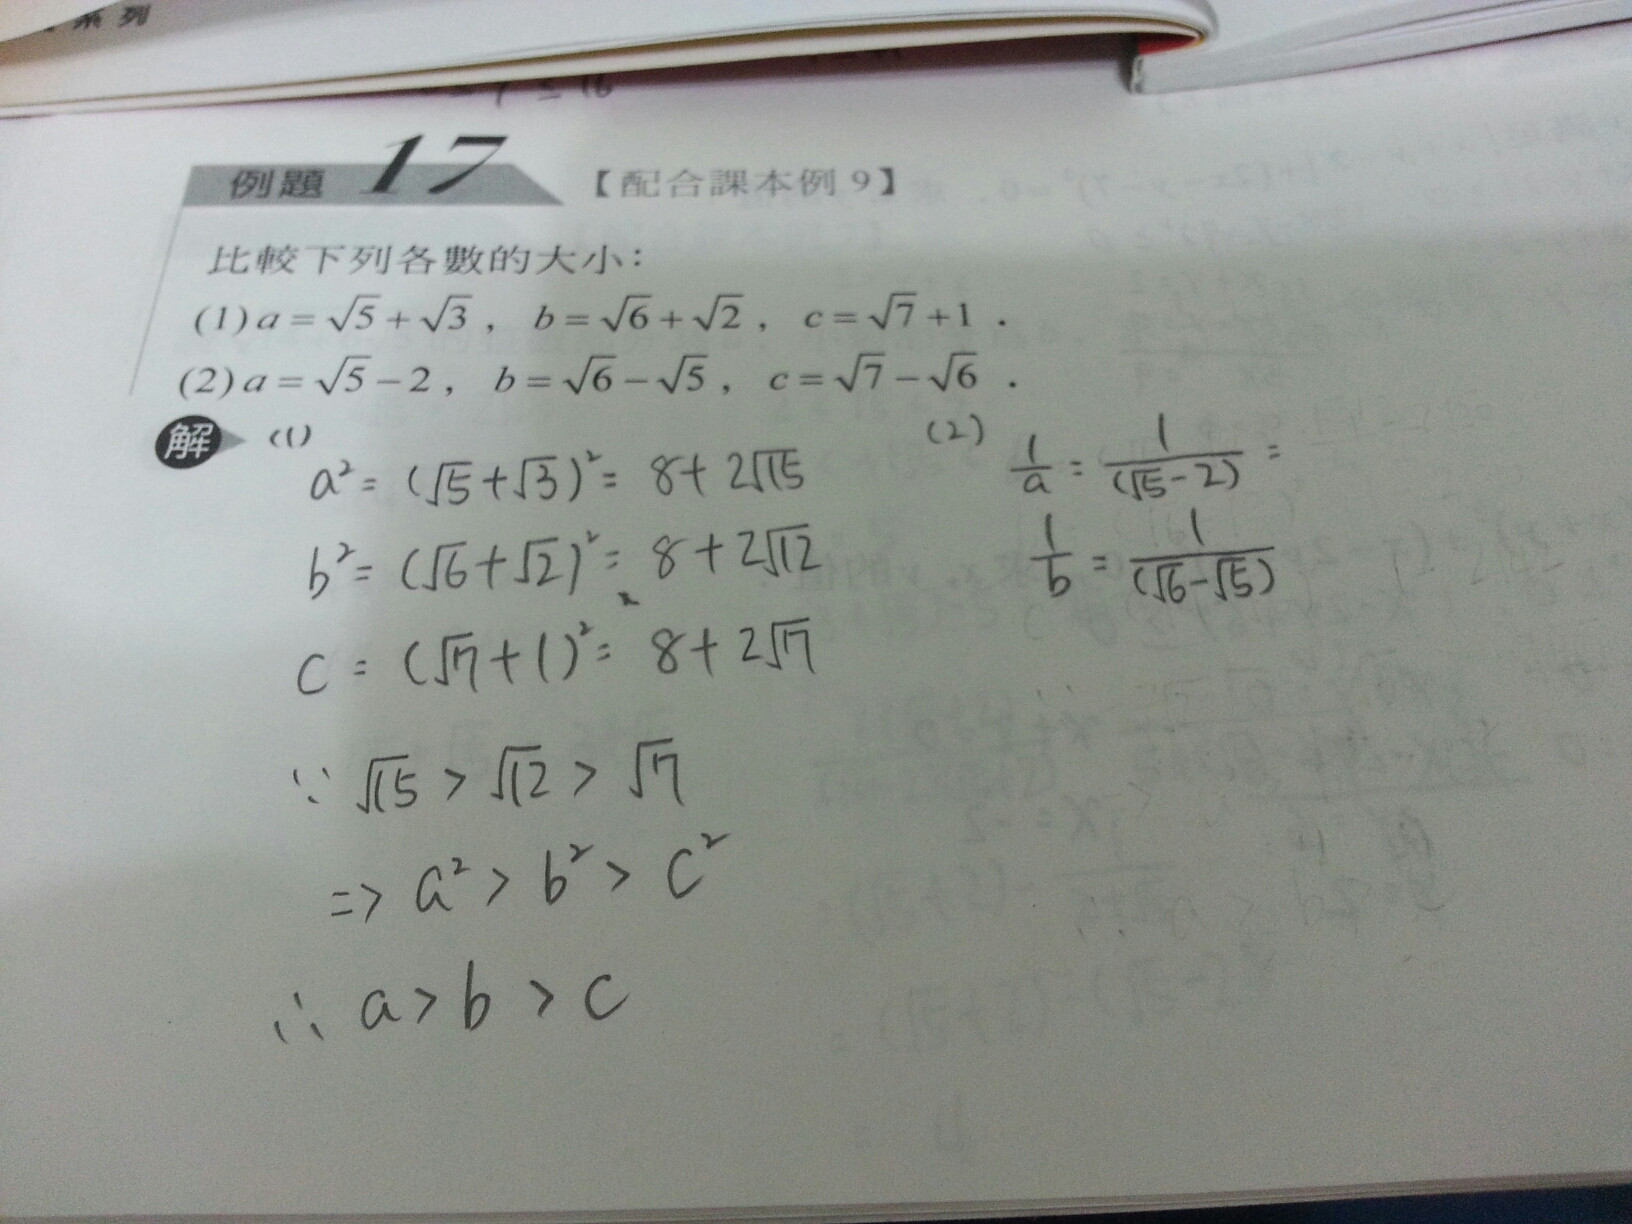 系列
例題 17 【配合課本例 9】
比較下列各數的大小：
(1) a = √5 + √3 ， b = √6 + √2 ， c = √7 + 1 .
(2) a = √5 − 2 ， b = √6 − √5 ， c = √7 − √6 .
解 (1)
a² = (√5 + √3)² = 8 + 2√15
b² = (√6 + √2)² = 8 + 2√12
c = (√7 + 1)² = 8 + 2√7
∵ √15 > √12 > √7
=> a² > b² > c²
∴ a > b > c
(2) 1/a = 1/(√5 - 2) =
1/b = 1/(√6 - √5)